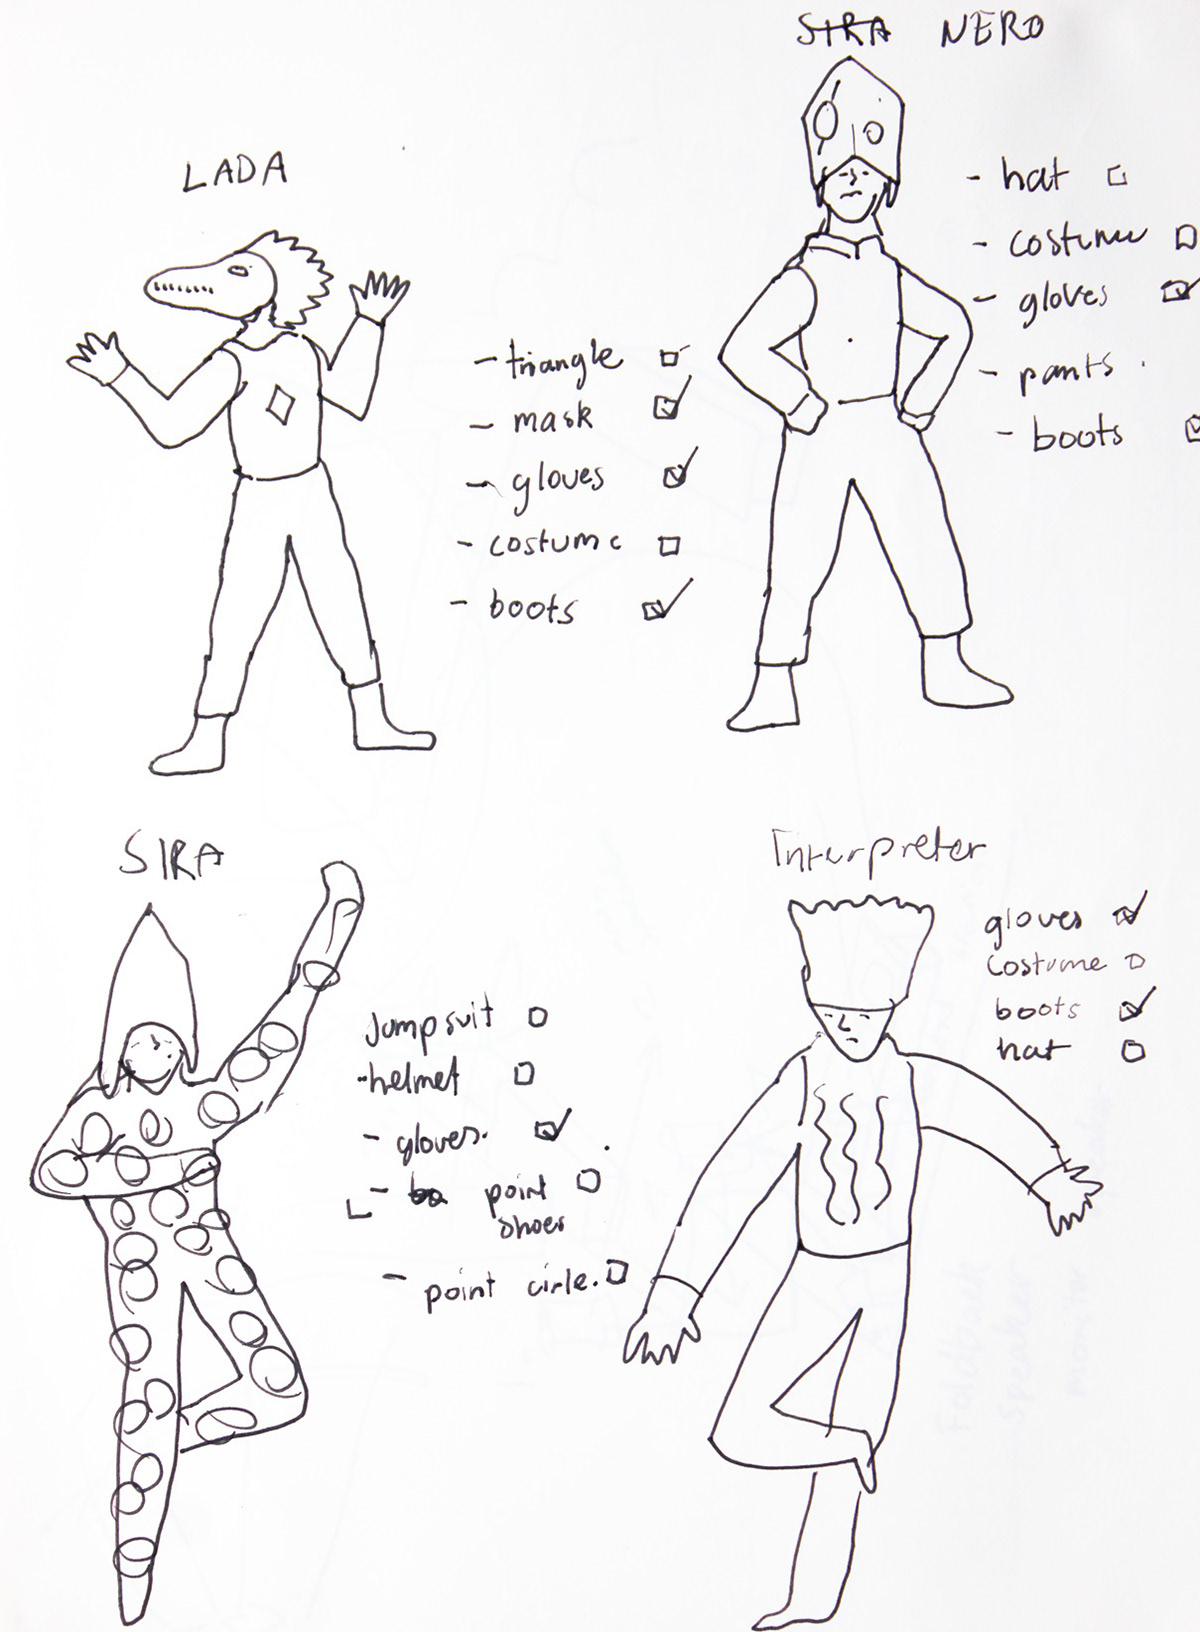 SIRA NERO
- hat
- costume
- gloves
- pants.
- boots
LADA
- triangle
- mask
- gloves
- costume
- boots
SIRA
Jumpsuit
- helmet
- gloves.
- point
shoes
- point cirle.
Interpreter
gloves
costume
boots
hat
Foldback
speaker
monitor